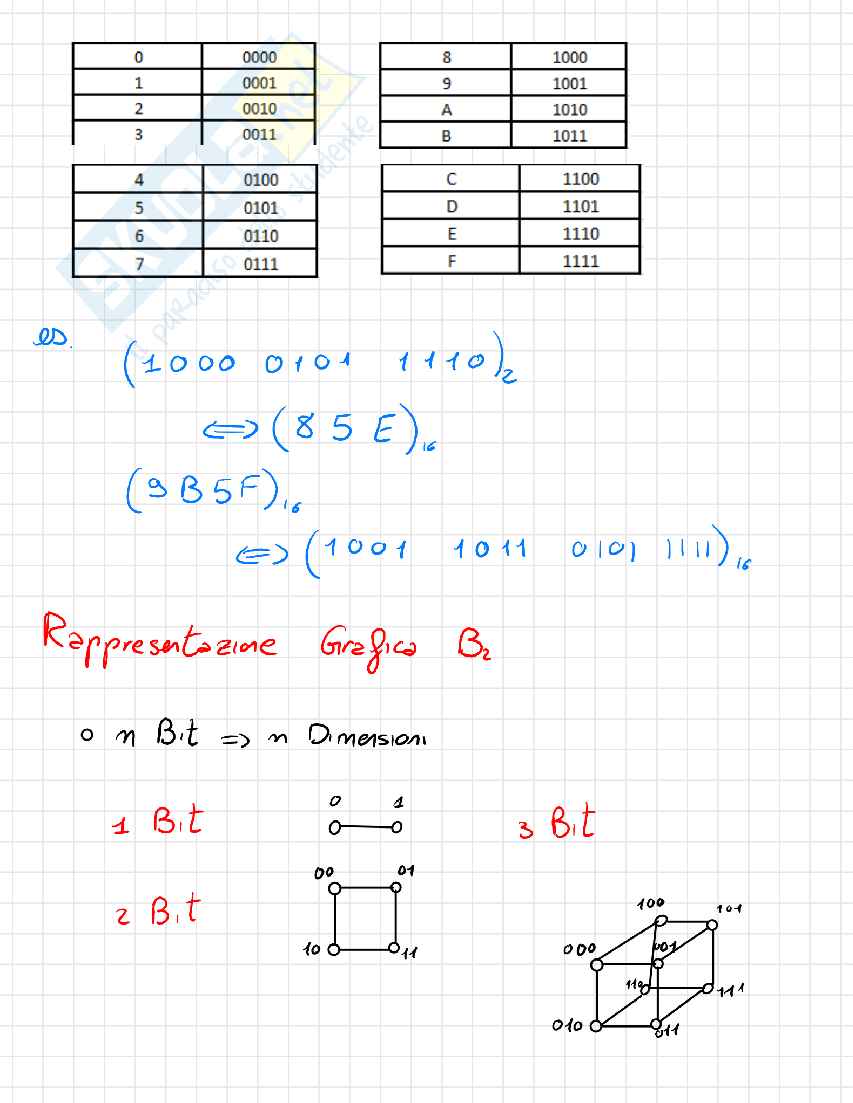 0 0000
1 0001
2 0010
3 0011
8 1000
9 1001
A 1010
B 1011
4 0100
5 0101
6 0110
7 0111
C 1100
D 1101
E 1110
F 1111
SKUOLA.net
il paradiso dello studente
es.
(1000 0101 1110)2
⇔ (85E)16
(9B5F)16
⇔ (1001 1011 0101 1111)16
Rappresentazione Grafica B2
o n Bit ⇒ n Dimensioni
1 Bit
0 1
3 Bit
2 Bit
00 01
10 11
100 101
000 001
110 111
010 011